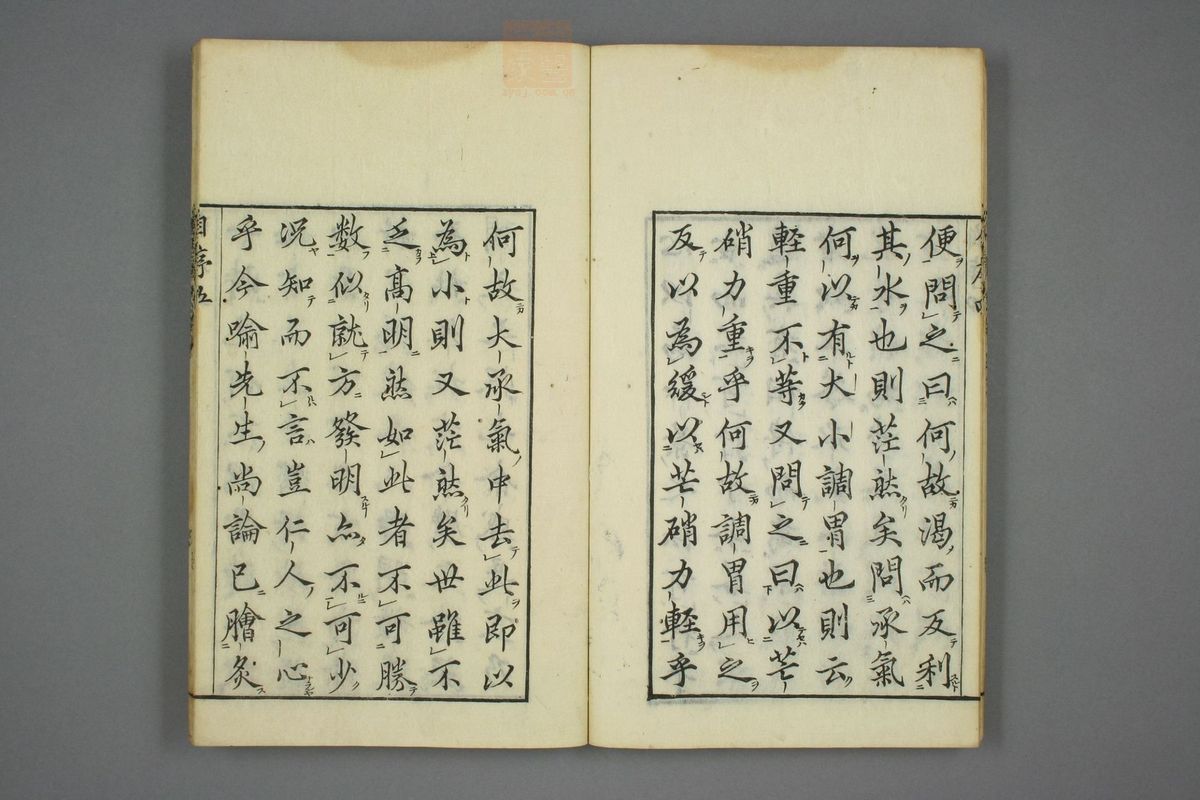 便問之曰何故渴而反利
其水也則茫然矣問承氣
何以有大小調胃也則云
軽重不等又問之曰以芒
硝力重乎何故調胃用之
反以為緩以芒硝力軽乎
何故大承氣中去此即以
為小則又茫然矣世雖不
乏高明然如此者不可勝
数似就方發明亦不可少
况知而不言豈仁人之心
乎今喻先生尚論已膾炙
自序 五